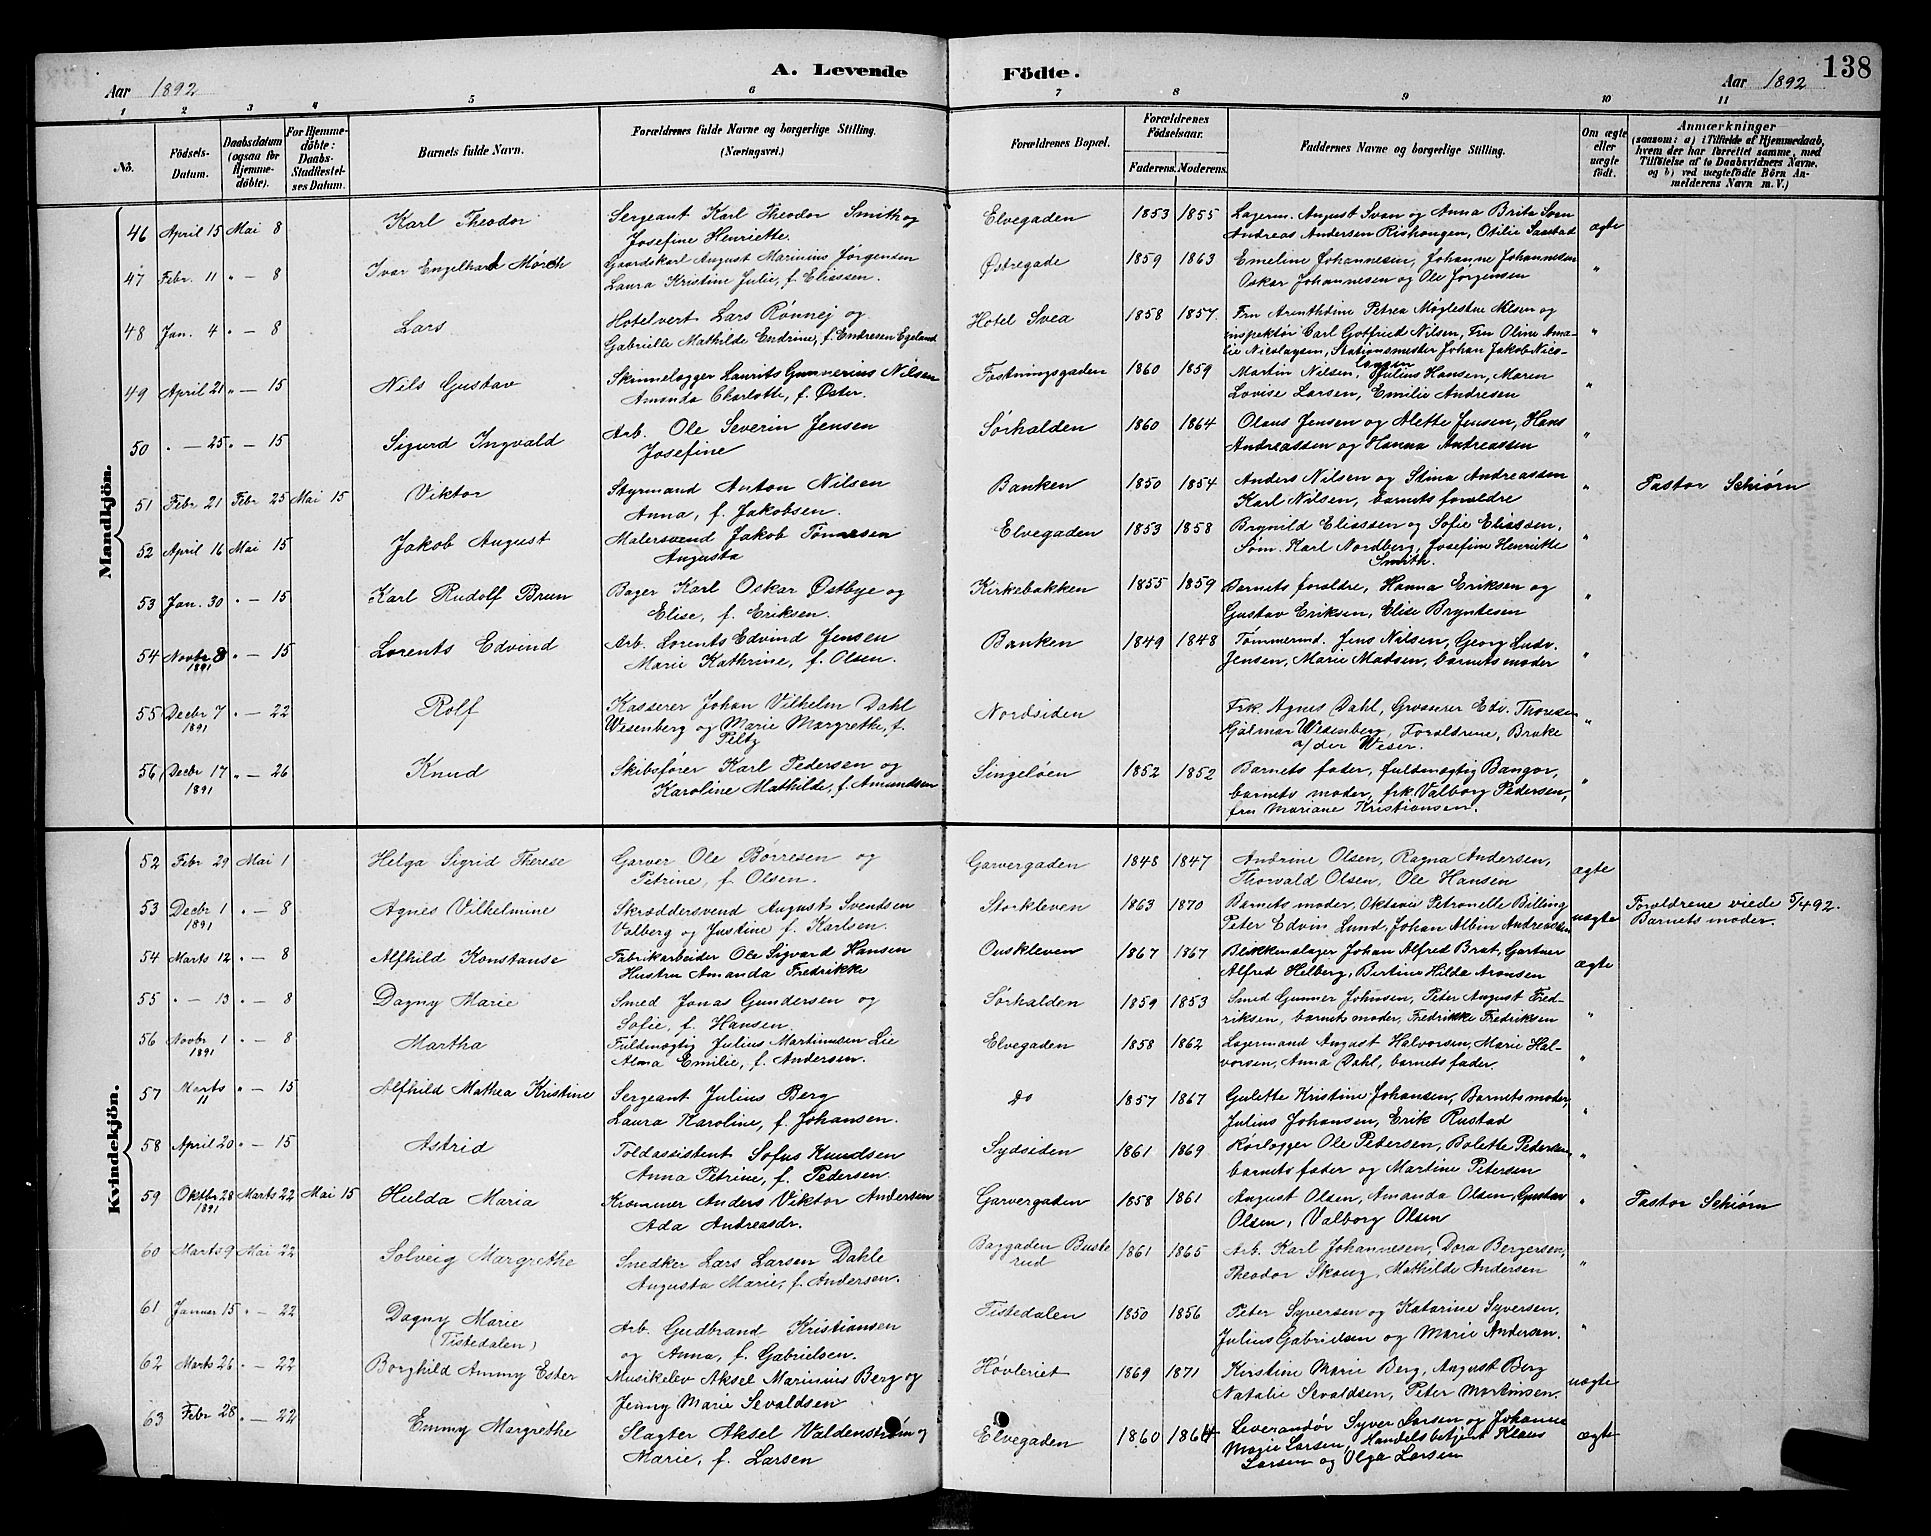 A. Levende Födte.
138
Aar 1892
Aar 1892
1 2 3 4 5 6 7 8 9 10 11
No.
Födsels-Datum.
Daabsdatum (ogsaa for Hjemme-döbte).
For Hjemme-döbte: Daabs-Stadfæstel-ses Datum.
Barnets fulde Navn.
Forældrenes fulde Navne og borgerlige Stilling. (Næringsvei.)
Forældrenes Bopæl.
Forældrenes Födselsaar.
Faderens. Moderens.
Faddernes Navne og borgerlige Stilling.
Om ægte eller uægte födt.
Anmærkninger (saasom: a) i Tilfælde af Hjemmedaab, hvem der har forrettet samme, med Tilföielse af to Daabsvidners Navne, og b) ved uægtefödte Börn Anmelderens Navn m. V.)
Mandkjön.
46 April 15 Mai 8 Karl Theodor
Sergeant Karl Theodor Smith og
Josefine Henriette.
Elvegaden 1853 1855
Lagerm. August Svan og Anna Brita Svan
Andreas Andersen Rishaugen, Otilie Saastad
ægte
47 Febr. 11 " — 8 Ivar Engelhardt Mörch
Gaardskarl August Marinius Jørgensen
Laura Kristine Julie, f. Eliassen.
Østregade 1859 1863
Emeline Johannesen, Johanne Johannesen
Oskar Johannesen og Ole Jørgensen
"
48 Jan. 4 " — 8 Lars
Hotelvert Lars Rønnej og
Gabrielle Mathilde Endrine, f. Endresen Egeland
Hotel Svea 1858 1857
Fru Arenthdine Petrea Møglestue Nilsen og
inspektør Carl Gotfried Nilsen, Fru Oline Ama-
lie Nicolaysen, Stationsmester Johan Jakob Nico-
laysen
"
49 April 21 " — 15 Nils Gustav
Skinnelægger Laurits Gunnerius Nilsen
Amanda Charlotte, f. Øster.
Fæstningsgaden 1860 1859
Martin Nilsen, Julius Hansen, Maren
Lovise Larsen, Emilie Andresen
"
50 " — 25 " — 15 Sigurd Ingvald
Arb. Ole Severin Jensen
Josefine
Sørhalden 1860 1864
Olaus Jensen og Alette Jensen, Hans
Andreassen og Hanna Andreassen
"
51 Febr 21 Febr 25 Mai 15 Viktor
Styrmand Anton Nilsen
Anna, f. Jakobsen.
Banken 1850 1854
Anders Nilsen og Stina Andreassen
Karl Nilsen, barnets forældre
"
Pastor Schiørn
52 April 16 Mai 15 Jakob August
Malersvend Jakob Tønnesen
Augusta
Elvegaden 1853 1858
Brynild Eliassen og Sofie Eliassen.
Søm. Karl Nordberg, Josefine Henriette
Smith.
"
53 Jan. 30 " — 15 Karl Rudolf Brun
Bager Karl Oskar Østbye og
Elise, f. Eriksen.
Kirkebakken 1855 1859
Barnets forældre, Hanna Eriksen og
Gustav Eriksen, Elise Bryntesen
"
54 Novbr 8 1891 " — 15 Lorents Edvind
Arb. Lorents Edvind Jensen
Marie Kathrine, f. Olsen.
Banken 1849 1848
Tømmermd. Jens Nilsen, Georg Ludv.
Jensen, Marie Madsen, barnets moder
"
55 Decbr 7 1891 " — 22 Rolf
Kasserer Johan Vilhelm Dahl
Wesenberg og Marie Margrethe, f.
Peltz
Nordsiden
Frk. Agnes Dahl, Grosserer Edv. Thoresen
Hjalmar Wesenberg, Forældrene, Brake
a/der Weser.
"
56 Decbr 17 1891 " — 26 Knud
Skibsfører Karl Pedersen og
Karoline Mathilde, f. Amundsen
Singeløen 1852 1852
Barnets fader, fuldmægtig Bangor,
barnets moder, frk. Valborg Pedersen,
fru Mariane Kristiansen.
"
Kvindekjön.
52 Febr 29 Mai 1 Helga Sigrid Therese
Garver Ole Børresen og
Petrine, f. Olsen.
Garvergaden 1848 1847
Andrine Olsen, Ragna Andersen,
Thorvald Olsen, Ole Hansen
ægte
53 Decbr 1 1891 " — 8 Agnes Vilhelmine
Skræddersvend August Svendsen
Valberg og Justine f. Karlsen.
Storkleven 1863 1870
Barnets moder, Oktavie Petronelle Billing
Peter Edvin Lund, Johan Albin Andreassen
uægte
Forældrene viede 5/4 92.
Barnets moder.
54 Marts 12 " — 8 Alfhild Konstanse
Fabrikarbeider Ole Sigvard Hansen
Hustru Amanda Fredrikke
Ouskleven 1867 1867
Blikkenslager Johan Alfred Brat, Gartner
Alfred Helberg, Bertine Hilda Aronsen
ægte
55 " — 13 " — 8 Dagny Marie
Smed Jonas Gundersen og
Sofie, f. Hansen.
Sørhalden 1859 1853
Smed Gunner Johnsen, Peter August Fred-
riksen, barnets moder, Fredrikke Fredriksen
"
56 Novbr 1 1891 " — 8 Martha
Fuldmægtig Julius Martiniusen Lie
Alma Emilie, f. Andersen.
Elvegaden 1858 1862
Lagermand August Halvorsen, Marie Hal-
vorsen, Anna Dahl, barnets fader.
"
57 Marts 11 " — 15 Alfhild Mathea Kristine
Sergeant Julius Berg
Laura Karoline, f. Johansen.
Do 1857 1867
Gulette Kristine Johansen, Barnets moder,
Julius Johansen, Erik Rustad
"
58 April 20 " — 15 Astrid
Toldassistent Sofus Knudsen
Anna Petrine, f. Pedersen.
Sydsiden 1861 1869
Rørlægger Ole Petersen, Bolette Pedersen
barnets fader og Martine Petersen
"
59 Oktbr 28 1891 Marts 22 Mai 15 Hulda Maria
Kræmmer Anders Viktor Andersen
Ada Andreasdr.
Garvergaden 1858 1861
August Olsen, Amanda Olsen, Gustav
Olsen, Valborg Olsen
"
Pastor Schiørn
60 Marts 9 Mai 22 Solveig Margrethe
Snedker Lars Larsen Dahle
Augusta Marie, f. Andersen.
Baggaden Buste
rud
1861 1865
Arb. Karl Johannesen, Dora Bergersen,
Theodor Skoug, Mathilde Andersen
"
61 Januar 15 " — 22 Dagny Marie
(Tistedalen)
Arb. Gudbrand Kristiansen
og Anna, f. Gabrielsen.
Tistedalen 1850 1856
Peter Syversen og Katarine Syversen.
Julius Gabrielsen og Marie Andersen.
"
62 Marts 26 " — 22 Borghild Ammy Ester
Musikelev Aksel Marinius Berg og
Jenny Marie Sevaldsen
Høvleriet 1869 1871
Kirstine Marie Berg, August Berg
Natalie Sevaldsen, Peter Martinsen.
uægte
63 Febr 28 " — 22 Emmy Margrethe
Slagter Aksel Valdenstrøm og
Marie, f. Larsen
Elvegaden 1860 1864
Leverandør Syver Larsen og Johanne
Marie Larsen, Handelsbetjent Klaus
Larsen og Olga Larsen
ægte